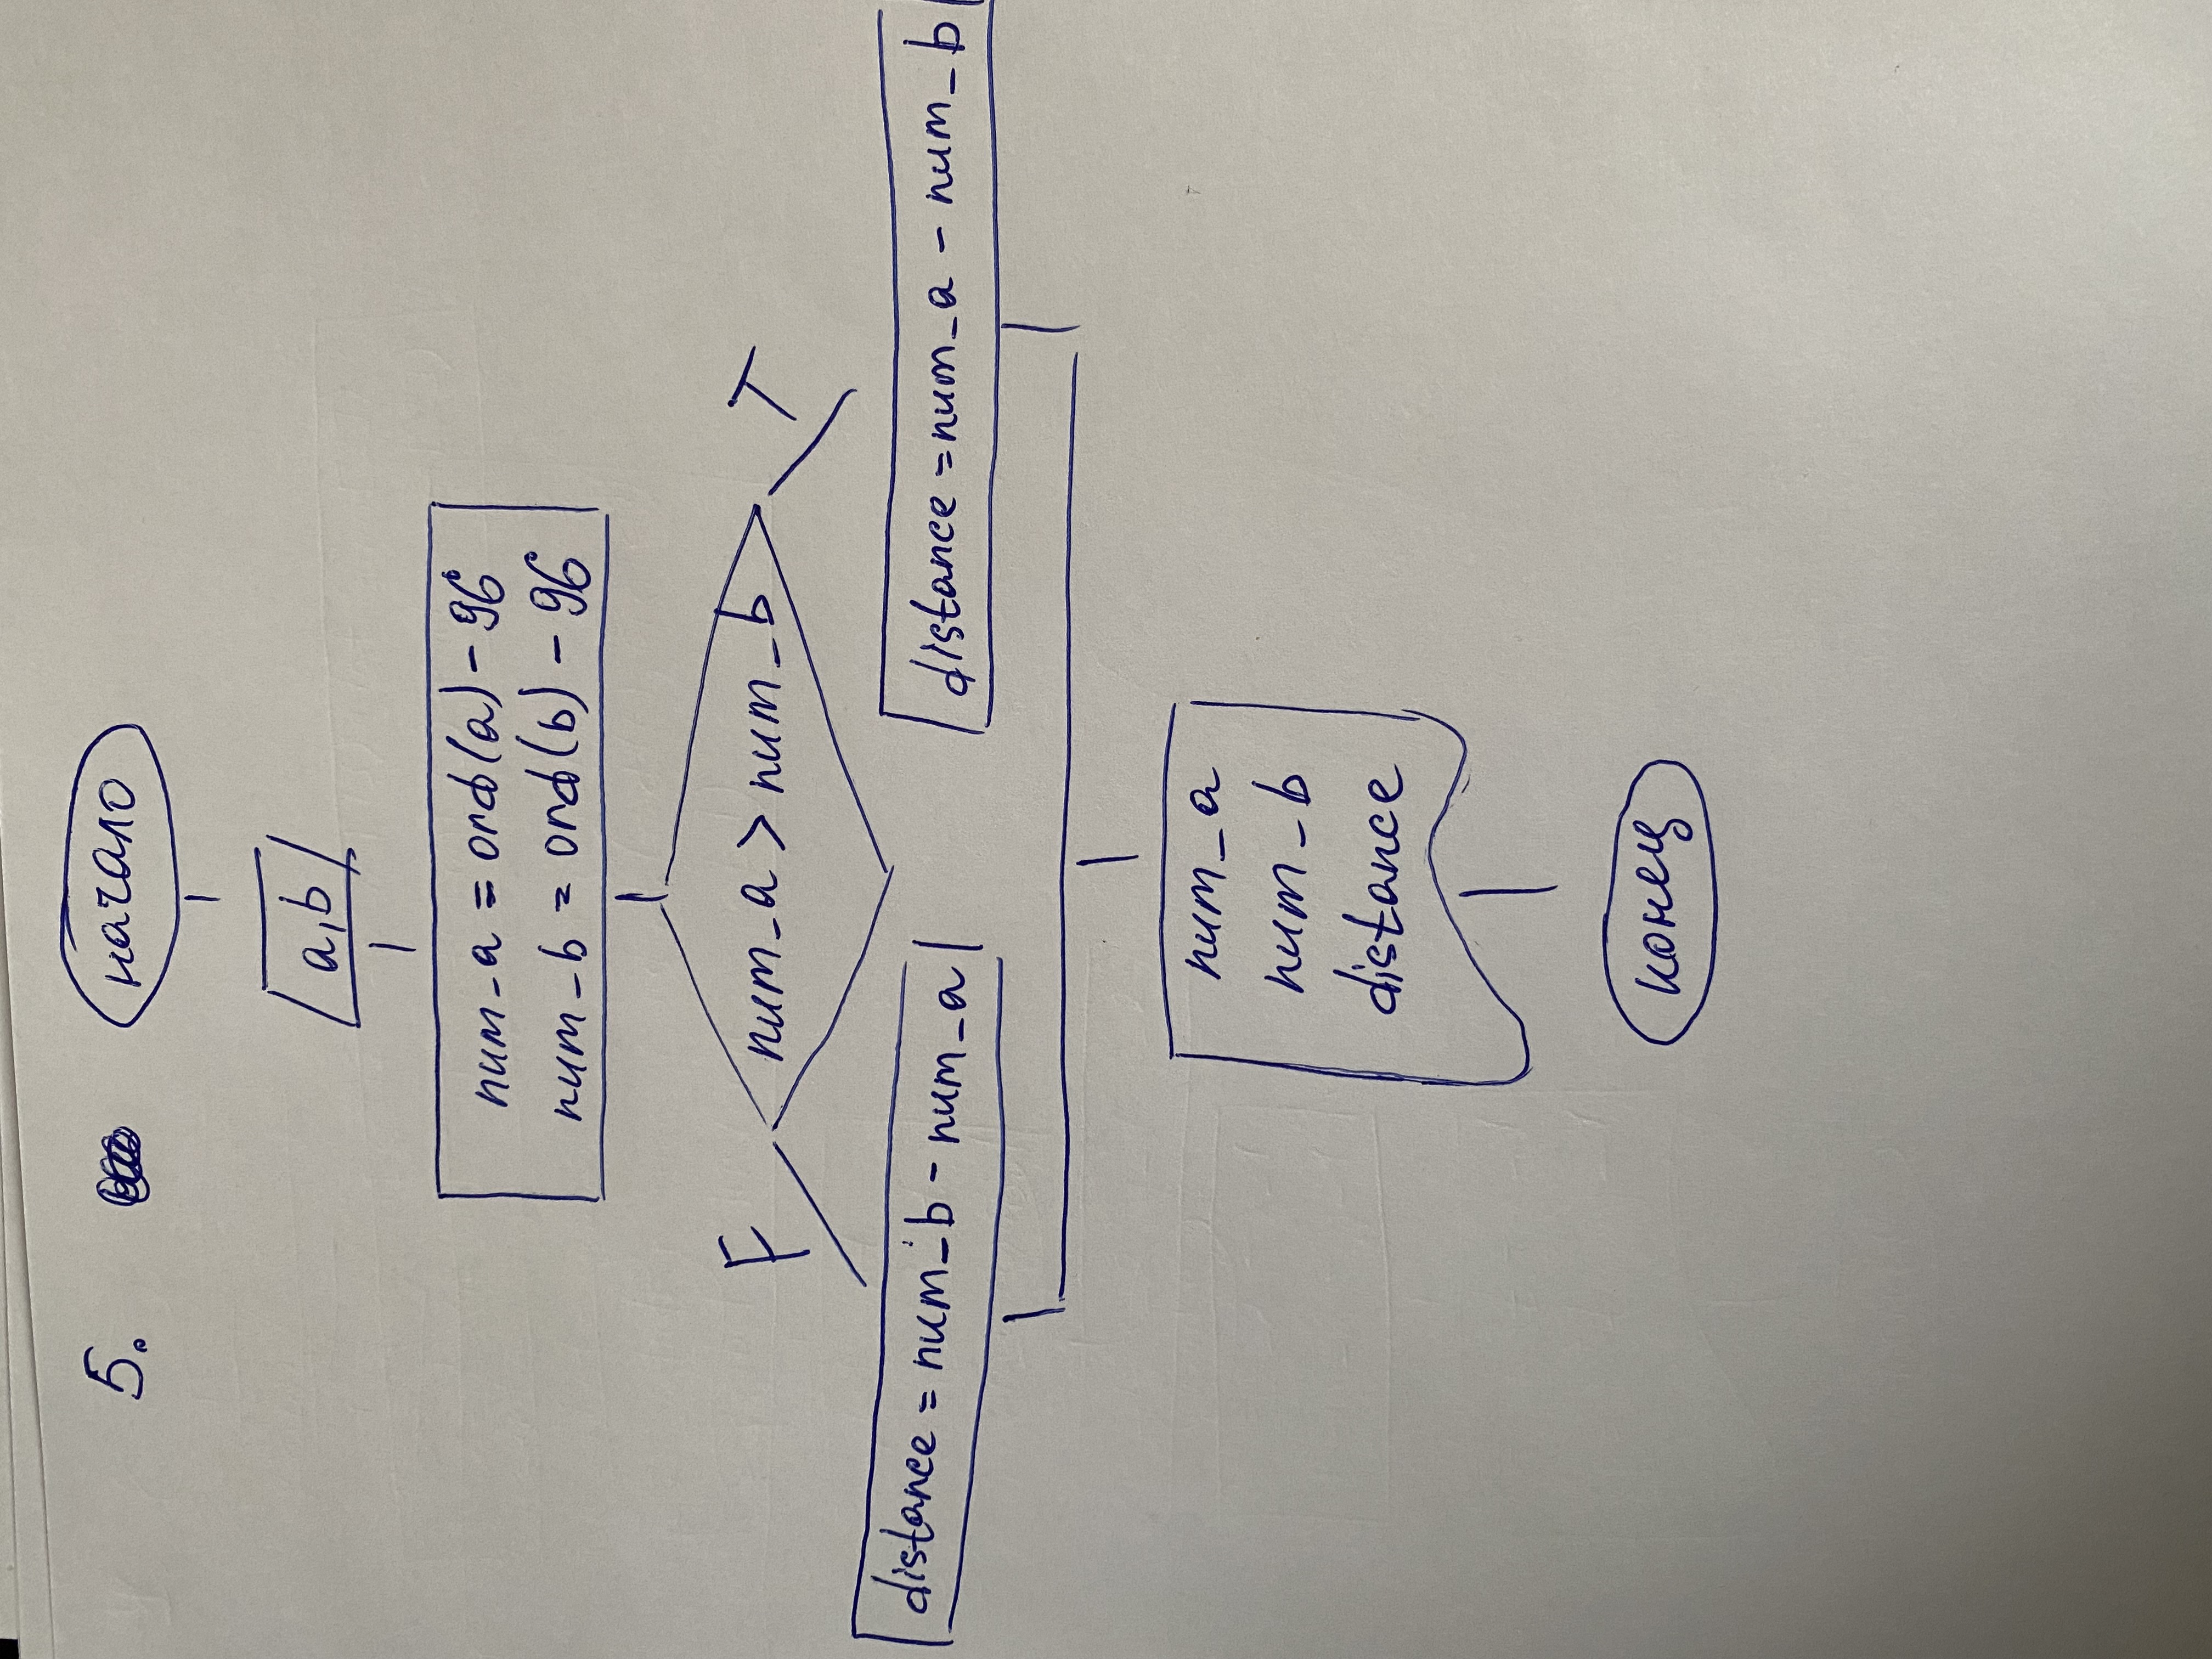 5. начало
a, b
num_a = ord(a) - 96
num_b = ord(b) - 96
F num_a > num_b T
distance = num_b - num_a
distance = num_a - num_b
num_a
num_b
distance
конец